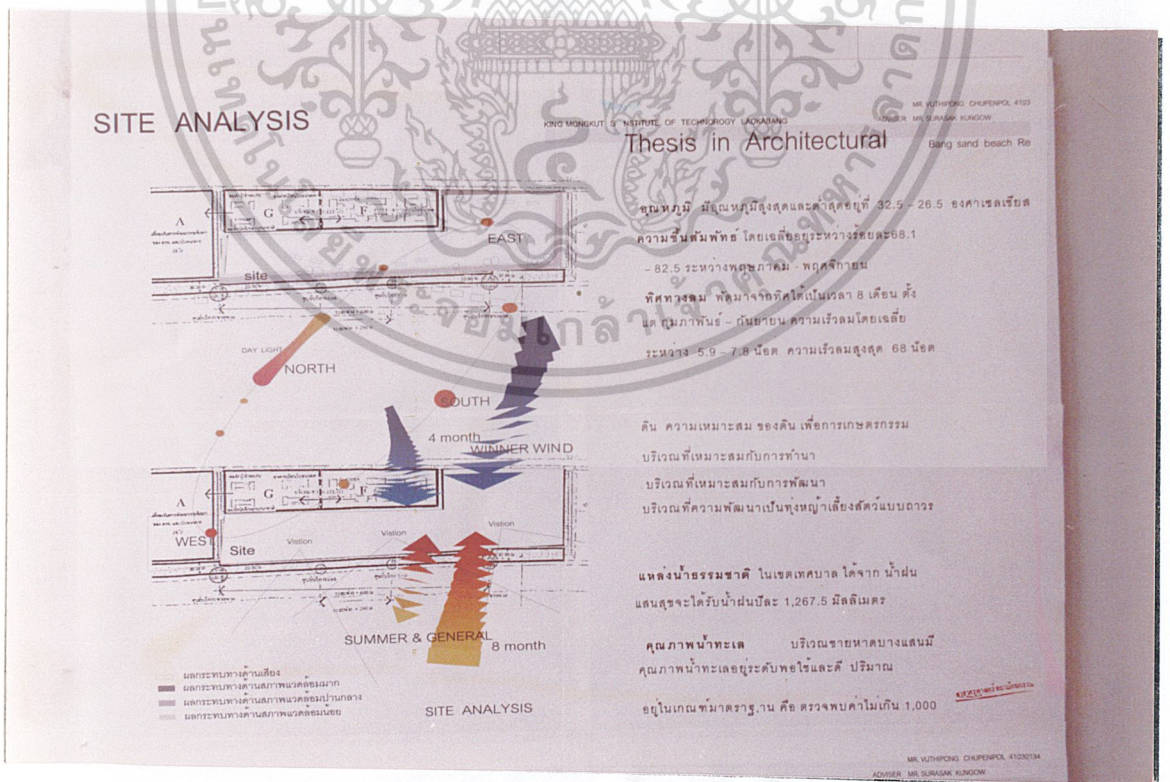 SITE ANALYSIS
KING MONGKUT S NSTITUTE OF TECHNOROGY LADKABANG
MR. VUTHIPONG CHUPENPOL 4103
ADVISER MR. SURASAK KUNGOW
Thesis in Architectural
Bang sand beach Re
A
G
F
EAST
site
DAY LIGHT
NORTH
SOUTH
4 month
WINNER WIND
A
G
F
WES
Site
Vistion
Vistion
Vistion
SUMMER & GENERAL
8 month
ผลกระทบทางด้านเสียง
ผลกระทบทางด้านสภาพแวดล้อมมาก
ผลกระทบทางด้านสภาพแวดล้อมปานกลาง
ผลกระทบทางด้านสภาพแวดล้อมน้อย
SITE ANALYSIS
อุณหภูมิ มีอุณหภูมิสูงสุดและต่ำสุดอยู่ที่ 32.5 - 26.5 องศาเซลเซียส
ความชื้นสัมพัทธ์ โดยเฉลี่ยอยู่ระหว่างร้อยละ68.1
- 82.5 ระหว่างพฤษภาคม - พฤศจิกายน
ทิศทางลม พัดมาจากทิศใต้เป็นเวลา 8 เดือน ตั้ง
แต่ กุมภาพันธ์ – กันยายน ความเร็วลมโดยเฉลี่ย
ระหว่าง 5.9 – 7.8 น๊อต ความเร็วลมสูงสุด 68 น๊อต
ดิน ความเหมาะสม ของดิน เพื่อการเกษตรกรรม
บริเวณที่เหมาะสมกับการทำนา
บริเวณที่เหมาะสมกับการพัฒนา
บริเวณที่ความพัฒนาเป็นทุ่งหญ้าเลี้ยงสัตว์แบบถาวร
แหล่งน้ำธรรมชาติ ในเขตเทศบาล ได้จาก น้ำฝน
แสนสุขจะได้รับน้ำฝนปีละ 1,267.5 มิลลิเมตร
คุณภาพน้ำทะเล บริเวณชายหาดบางแสนมี
คุณภาพน้ำทะเลอยู่ระดับพอใช้และดี ปริมาณ
อยู่ในเกณฑ์มาตราฐ,าน คือ ตรวจพบค่าไม่เกิน 1,000
MR. VUTHIPONG CHUPENPOL 41030134
ADVISER MR. SURASAK KUNGOW